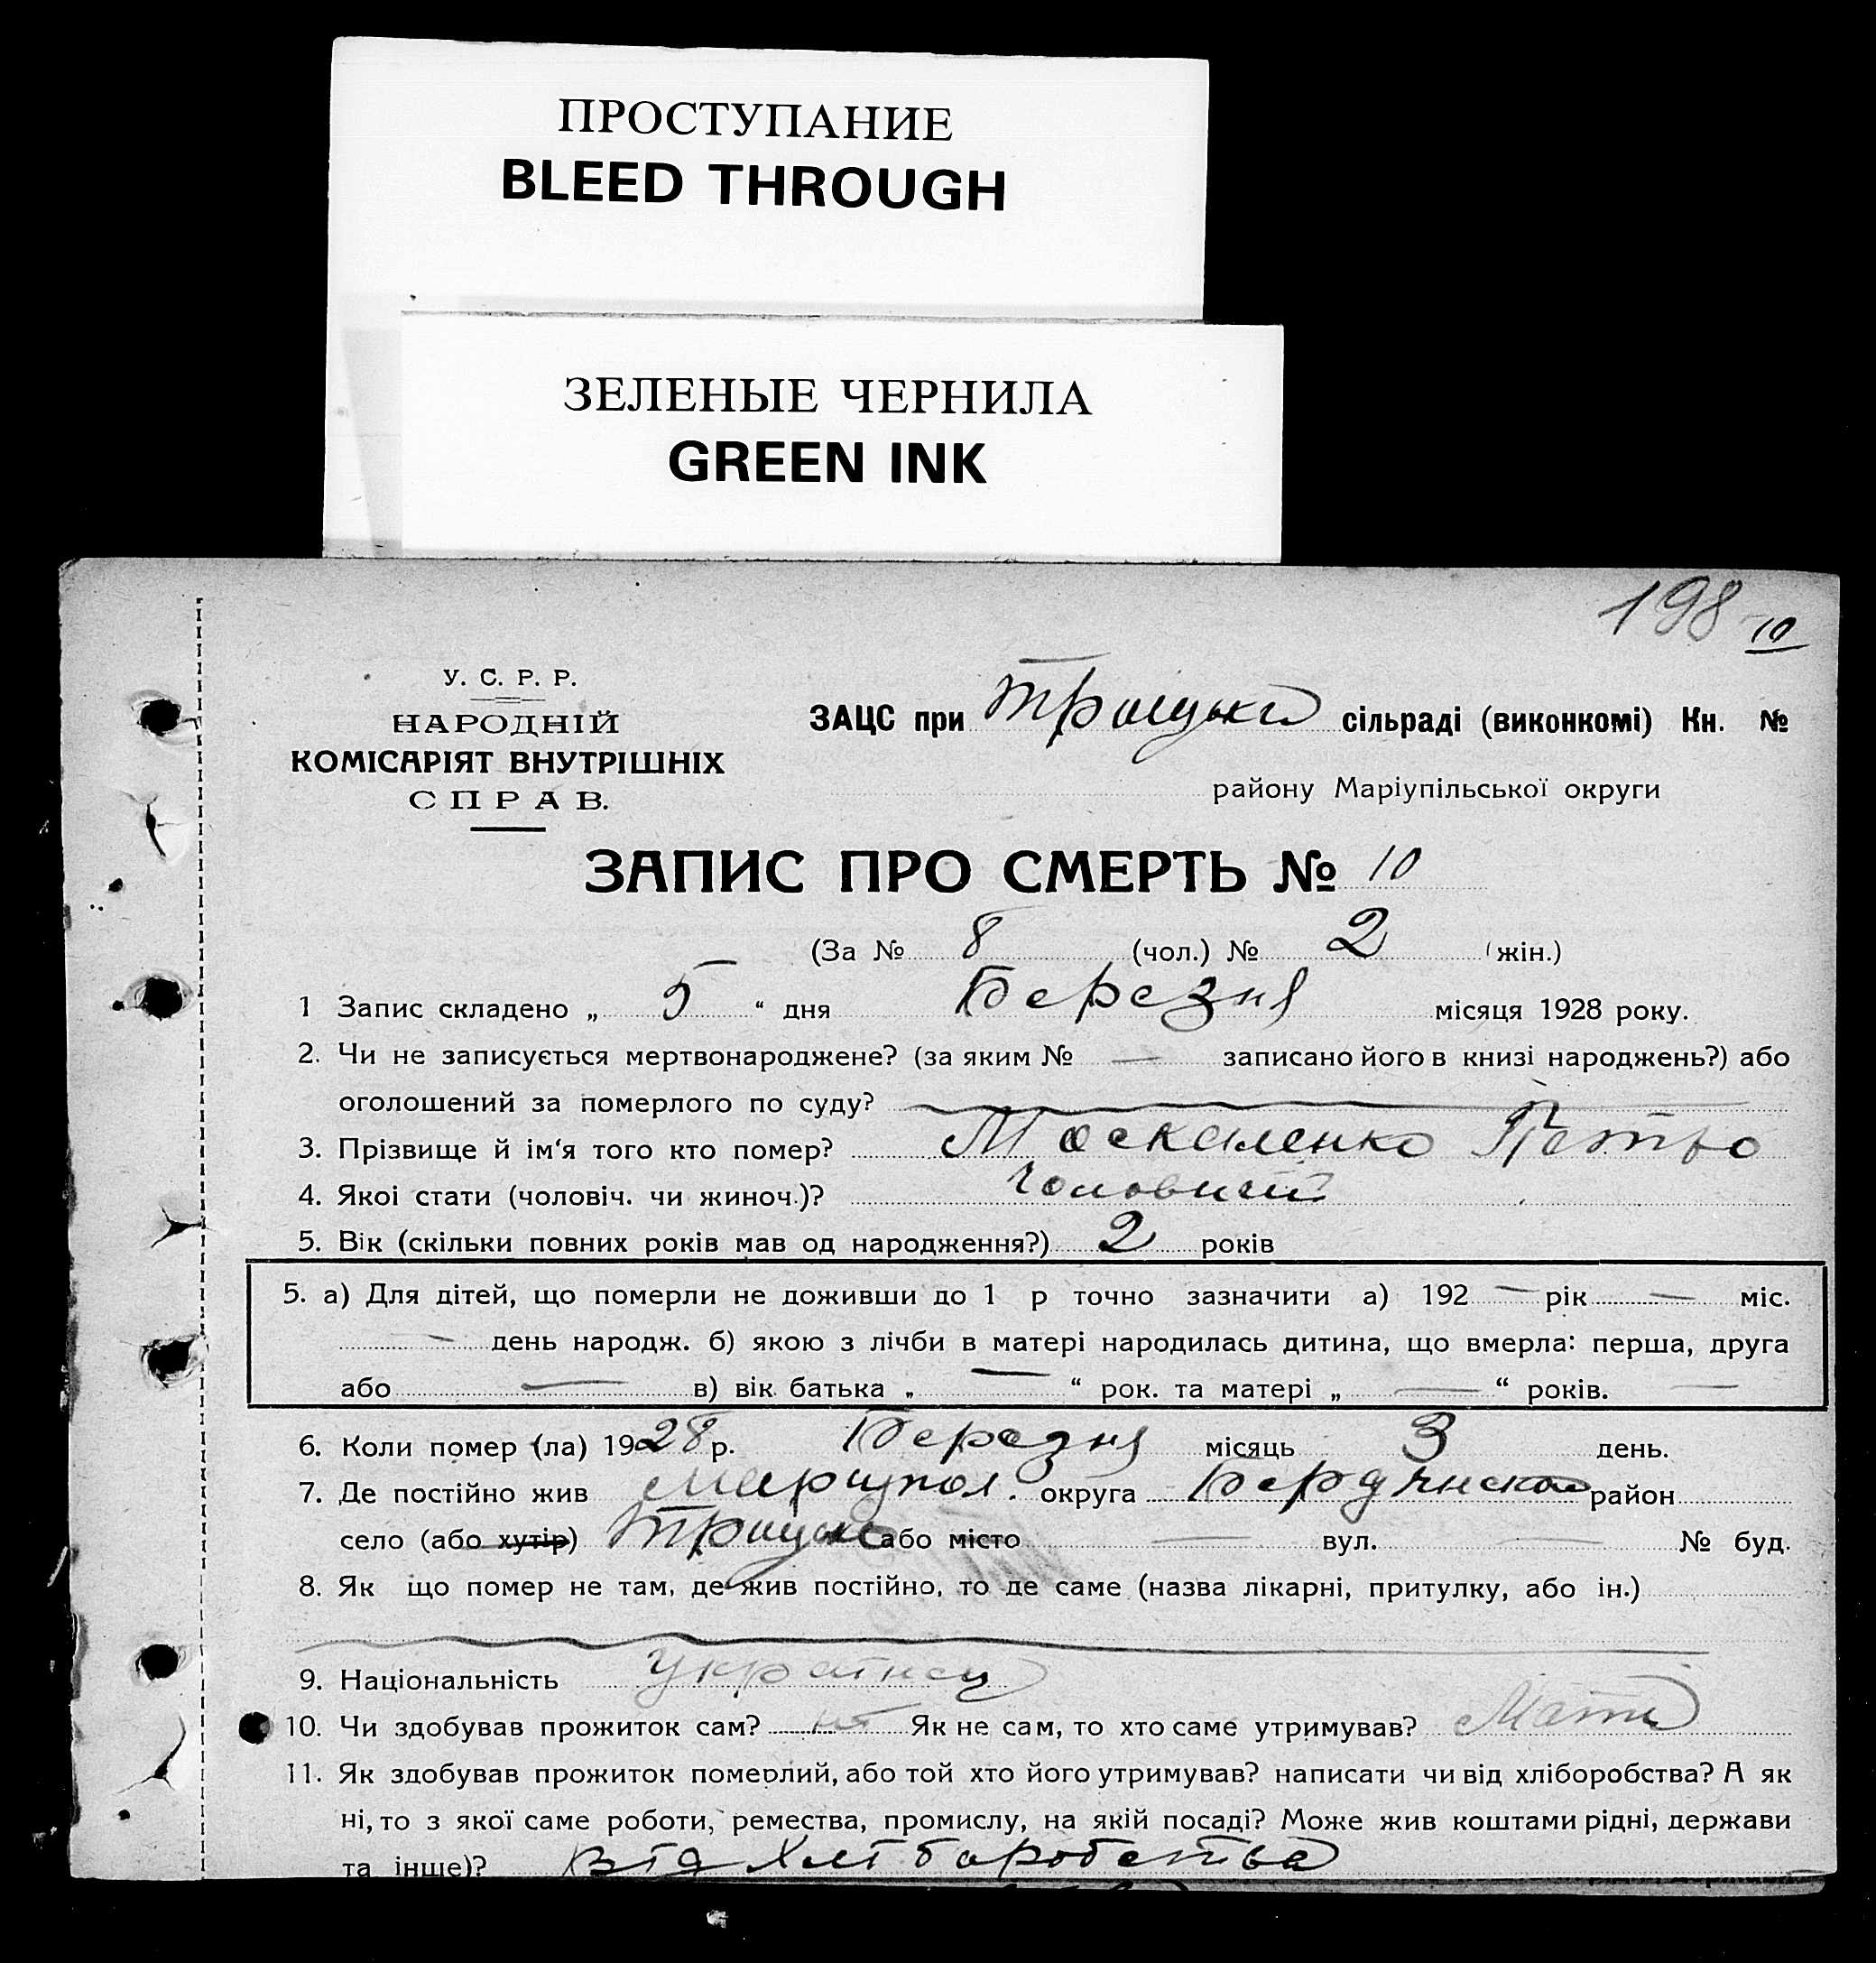 ПРОСТУПАНИЕ
BLEED THROUGH
ЗЕЛЕНЫЕ ЧЕРНИЛА
GREEN INK
198 10
У. С. Р. Р.
НАРОДНІЙ
КОМІСАРІЯТ ВНУТРІШНІХ
СПРАВ.
ЗАЦС при Троицькі сільраді (виконкомі) Кн. №
району Маріупільської округи
ЗАПИС ПРО СМЕРТЬ № 10
(За № 8 (чол.) № 2 (жін.)
1 Запис складено „ 5 “ дня Березня місяця 1928 року.
2. Чи не записується мертвонароджене? (за яким № — записано його в книзі народжень?) або
оголошений за померлого по суду?
3. Прізвище й ім‘я того кто помер? Москаленко Петро
4. Якоі стати (чоловіч. чи жиноч.)?
5. Вік (скільки повних років мав од народження?) 2 років
5. а) Для дітей, що померли не доживши до 1 р точно зазначити а) 192 — рік — міс.
— день народж. б) якою з лічби в матері народилась дитина, що вмерла: перша, друга
або — в) вік батька „ — “ рок. та матері „ — “ років. —
6. Коли помер (ла) 1928 р. Березня місяць 3 день.
7. Де постійно жив Маріупол. округа Бердянськ район
село (або хутір) або місто — вул. — № буд.
8. Як що помер не там, де жив постійно, то де саме (назва лікарні, притулку, або ін.)
9. Національність Українец
10. Чи здобував прожиток сам? ні Як не сам, то хто саме утримував? Мати
11. Як здобував прожиток померлий, або той хто його утримував? написати чи від хліборобства? А як
ні, то з якої саме роботи, ремества, промислу, на якій посаді? Може жив коштами рідні, держави
та інше)? Від Хліборобства